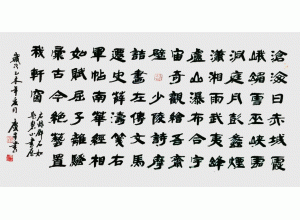 滄海日赤城霞
峨嵋雪巫峽雲
洞庭月彭蠡煙
瀟湘雨武夷峰
廬山瀑布合宇
宙奇觀繪吾齋
壁少陵詩摩
詰畫左傳文馬
遷史薛濤箋右
軍帖南華經相
如賦屈子離騷
古今絕藝置
我軒窗
鄧石如
歲次乙未年